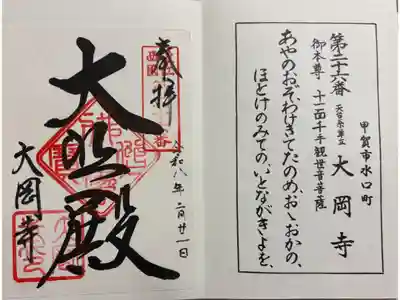 甲賀市水口町
第二十六番 天台系単立 大岡寺
御本尊 十一面千手観世音菩薩
あやのおぞわけきてたのめ、おゝおかの、
ほとけのみての、いとながきよを、
奉拝
令和八年二月廿一日
大悲殿
大岡寺